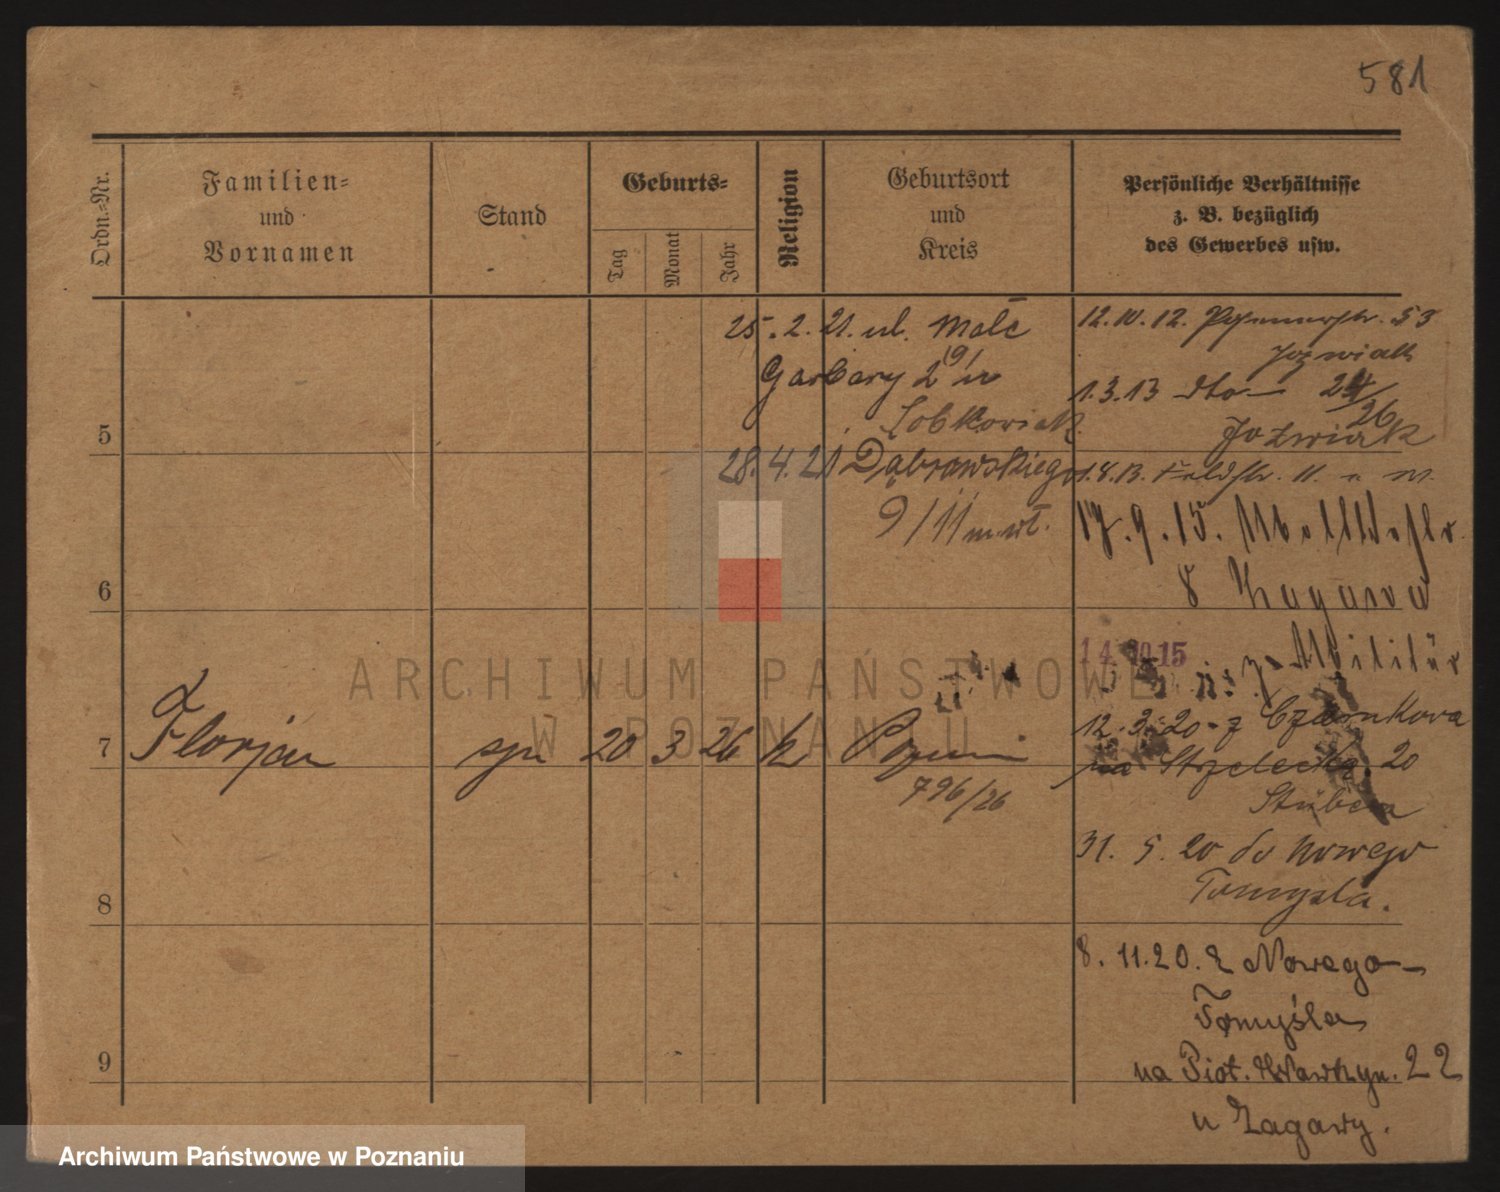 581
Ordn.-Nr.
Familien-
und
Vornamen
Stand
Geburts-
Tag
Monat
Jahr
Religion
Geburtsort
und
Kreis
Persönliche Verhältnisse
z. B. bezüglich
des Gewerbes usw.
25.2.21. ul. Małe
Garbary 2
Sobkowiak
28.4.21 Dąbrowskiego
9/11 m. wł.
12.10.12. 53
Jozwiak
1.3.13 dto 24/26
Jozwiak
1.8.13. Feldstr. 11.
17.9.15.
8 Zagawa
14 10 15 Militär
12.3.20 z Czarnkowa
na Strzelecka 20
Stübera
31. 5. 20 do Nowego
Tomysla.
8. 11.20. z Nowego
Tomyśla
na Piot. Wawrzyn. 22
u Zagawy.
5
6
7 Florjan syn 20 3 26 k Poznań
796/26
8
9
ARCHIWUM PAŃSTWOWE
W POZNANIU
Archiwum Państwowe w Poznaniu